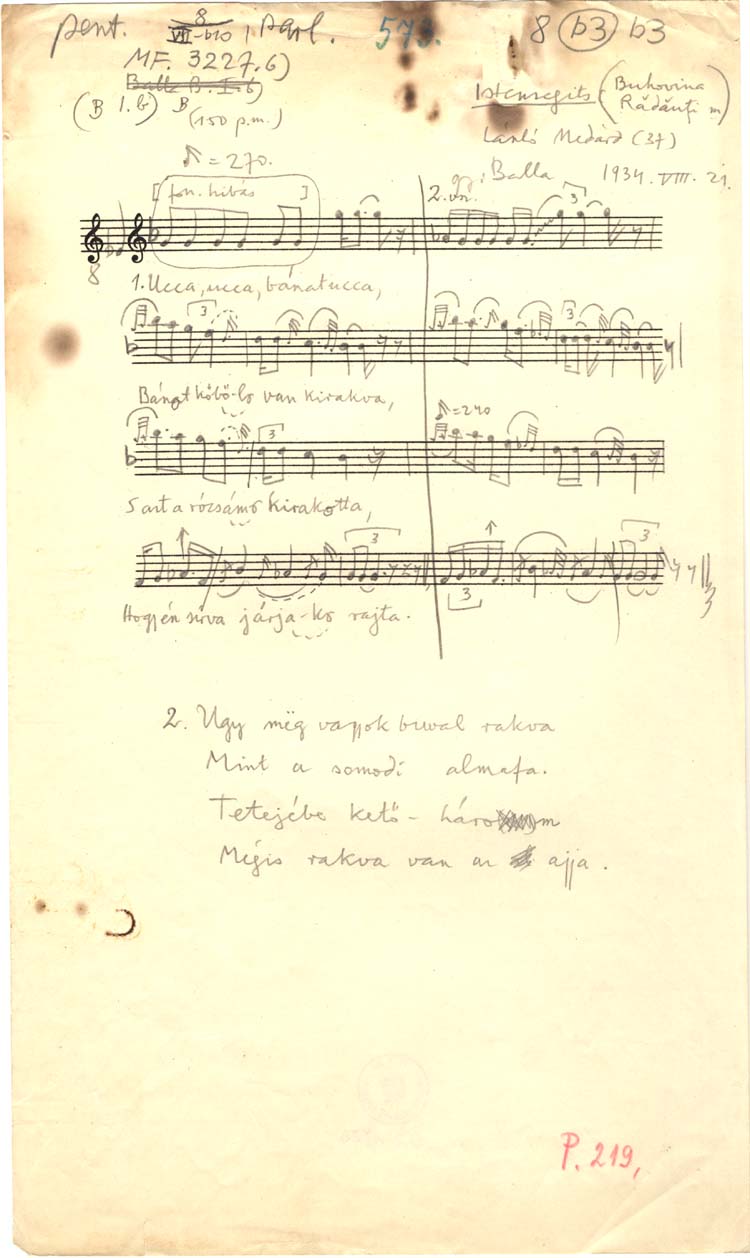 pent. 8 VII-b10 | parl. 573. 8 b3 b3
MF. 3227.b)
Balla B. I. b)
(B I.b) B
(150 p.m.)
Istensegits (Bukovina
Rădăuţi m)
László Medárd (37)
gy: Balla 1934. VIII. 21.
= 270.
[ fon. hibás ]
2. vsz.
3
8
1. Ucca, ucca, bánatucca,
3
3
Bánat kőbő-lo van kirakva,
= 240
3
Sazt a rózsámo kirakotta,
3
3
3
Hogy én sírva járja-ko rajta.
2. Ugy még vagyok buval rakva
Mint a somodi almafa.
Tetejébe kető - három
Mégis rakva van az ajja.
P. 219,